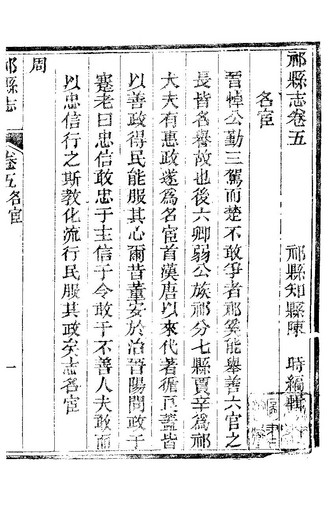 祁縣志卷五
祁縣知縣陳 時編輯
名宦
晉悼公勤三駕而楚不敢爭者祁奚能舉善六官之
長皆名譽故也後六卿弱公族祁分七縣賈辛為祁
大夫有惠政遂為名宦首漢唐以來代著循良蓋皆
以善政得民能服其心爾昔董安於治晉陽問政于
蹇老曰忠信敢忠于主信于令敢于不善人夫敢而
以忠信行之斯教化流行民服其政矣志名宦
周
祁縣志
卷五名宦
一